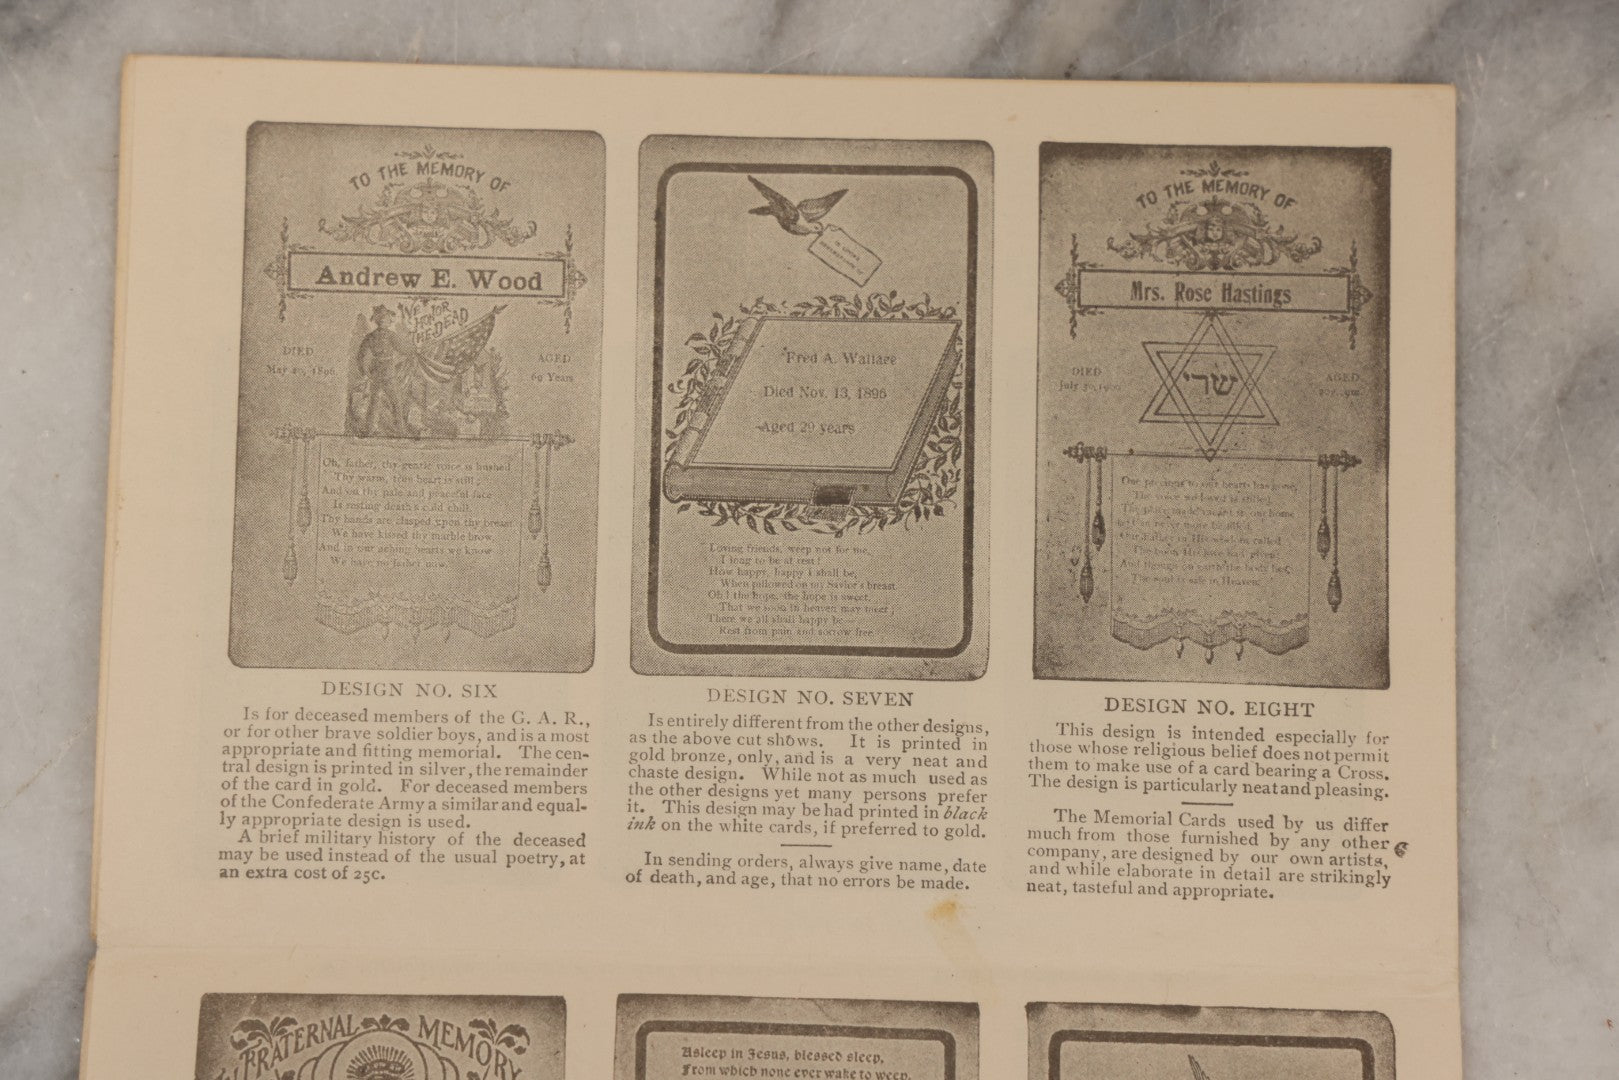 TO THE MEMORY OF
Andrew E. Wood
WE HONOR
THE DEAD
DIED
May 20, 1896
AGED
69 Years
Oh, father, thy gentle voice is hushed
Thy warm, true heart is still;
And on thy pale and peaceful face
Is resting death's cold chill.
Thy hands are clasped upon thy breast
We have kissed thy marble brow,
And in our aching hearts we know
We have no father now.
DESIGN NO. SIX
Is for deceased members of the G. A. R.,
or for other brave soldier boys, and is a most
appropriate and fitting memorial. The cen-
tral design is printed in silver, the remainder
of the card in gold. For deceased members
of the Confederate Army a similar and equal-
ly appropriate design is used.
A brief military history of the deceased
may be used instead of the usual poetry, at
an extra cost of 25c.
Fred A. Wallace
Died Nov. 13, 1896
Aged 29 years
Loving friends, weep not for me,
I long to be at rest!
How happy, happy I shall be,
When pillowed on my Savior's breast.
Oh! the hope, the hope is sweet,
That we soon in heaven may meet;
There we all shall happy be—
Rest from pain and sorrow free.
DESIGN NO. SEVEN
Is entirely different from the other designs,
as the above cut shows. It is printed in
gold bronze, only, and is a very neat and
chaste design. While not as much used as
the other designs yet many persons prefer
it. This design may be had printed in black
ink on the white cards, if preferred to gold.
In sending orders, always give name, date
of death, and age, that no errors be made.
TO THE MEMORY OF
Mrs. Rose Hastings
שרי
DIED
July 30, 1900
AGED
One precious to our hearts has gone,
The voice we loved is stilled,
The place made vacant in our home
Can never more be filled.
Our Father in His wisdom called
The boon His love had given;
And though on earth the body lies,
The soul is safe in Heaven.
DESIGN NO. EIGHT
This design is intended especially for
those whose religious belief does not permit
them to make use of a card bearing a Cross.
The design is particularly neat and pleasing.
The Memorial Cards used by us differ
much from those furnished by any other
company, are designed by our own artists,
and while elaborate in detail are strikingly
neat, tasteful and appropriate.
FRATERNAL MEMORY
Asleep in Jesus, blessed sleep,
From which none ever wake to weep.